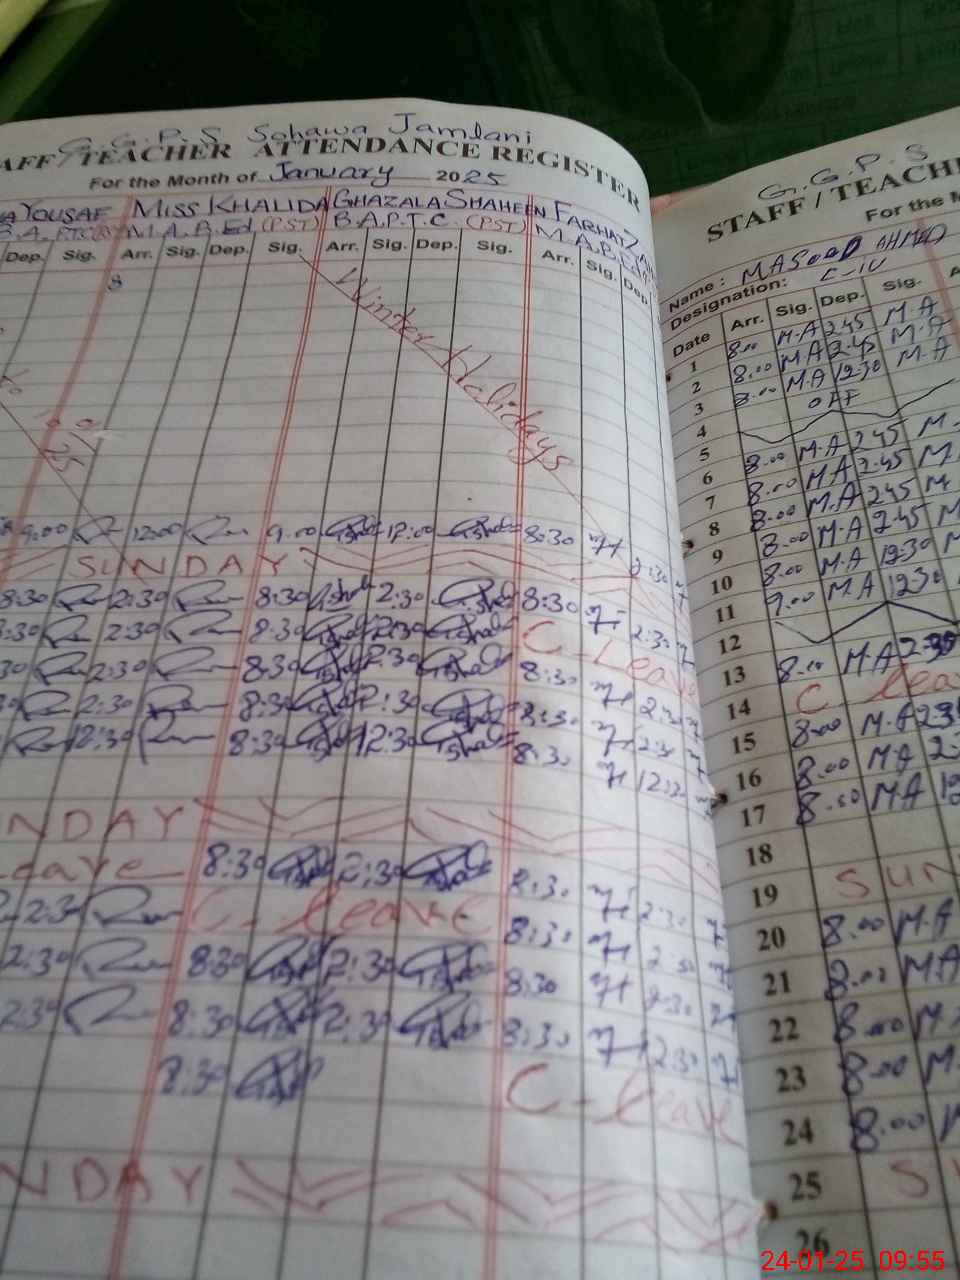 G.G.P.S Sohawa Jamlani
AFF/TEACHER ATTENDANCE REGISTER
For the Month of January 2025
A YOUSAF MISS KHALIDA GHAZALA SHAHEEN FARHAT
B.A, PTC M.A, B.Ed (PST) B.A, P.T.C. (PST) M.A, B.Ed
Dep. Sig. Arr. Sig. Dep. Sig. Arr. Sig. Dep. Sig. Arr. Sig. Dep.
Winter Holidays
9:00 12:00 9:00 12:00 8:30 2:30
SUNDAY
8:30 2:30 8:30 2:30 8:30 2:30
:30 2:30 8:30 2:30 C-Leave
30 2:30 8:30 2:30 8:30 2:30
2:30 8:30 2:30 8:30 2:30
12:30 8:30 12:30 8:30 12:30
NDAY
eave 8:30 2:30 8:30 2:30
2:30 C-leave 8:30 2:30
2:30 8:30 2:30 8:30 2:30
2:30 8:30 2:30 8:30 2:30
8:30 C-leave
NDAY
G.G.P.S
STAFF/TEACHE
For the M
Name: MASOOD AHMED
Designation: C-IV
Date Arr. Sig. Dep. Sig.
1 8.00 M.A 2.45 M.A
2 8.00 M.A 2.45 M.A
3 8.00 M.A 12.30 M.A
4 OFF
5
6 8.00 M.A 2.45 M.
7 8.00 M.A 2.45 M.
8 8.00 M.A 2.45 M
9 8.00 M.A 2.45 M
10 8.00 M.A 12.30 M
11 9.00 M.A 12.30
12
13 8.00 M A 2.30
14 C leav
15 8.00 M.A 2.3
16 8.00 MA 2.
17 8.00 MA 12
18
19 SUN
20 8.00 M.A
21 8.00 M.A
22 8.00 M.
23 8.00 M.
24 8.00
25 S
26
24-01-25 09:55